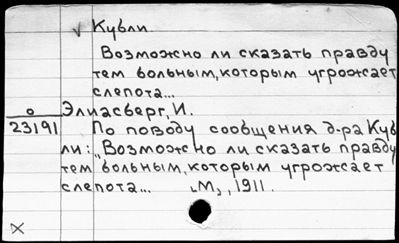 √ Кубли
Возможно ли сказать правду
тем больным, которым угрожает
слепота...
о Элиасберг, И.
23191 По поводу сообщения д-ра Куб
ли: „Возможно ли сказать правду
тем больным, которым угрожает
слепота... „М„, 1911.
X